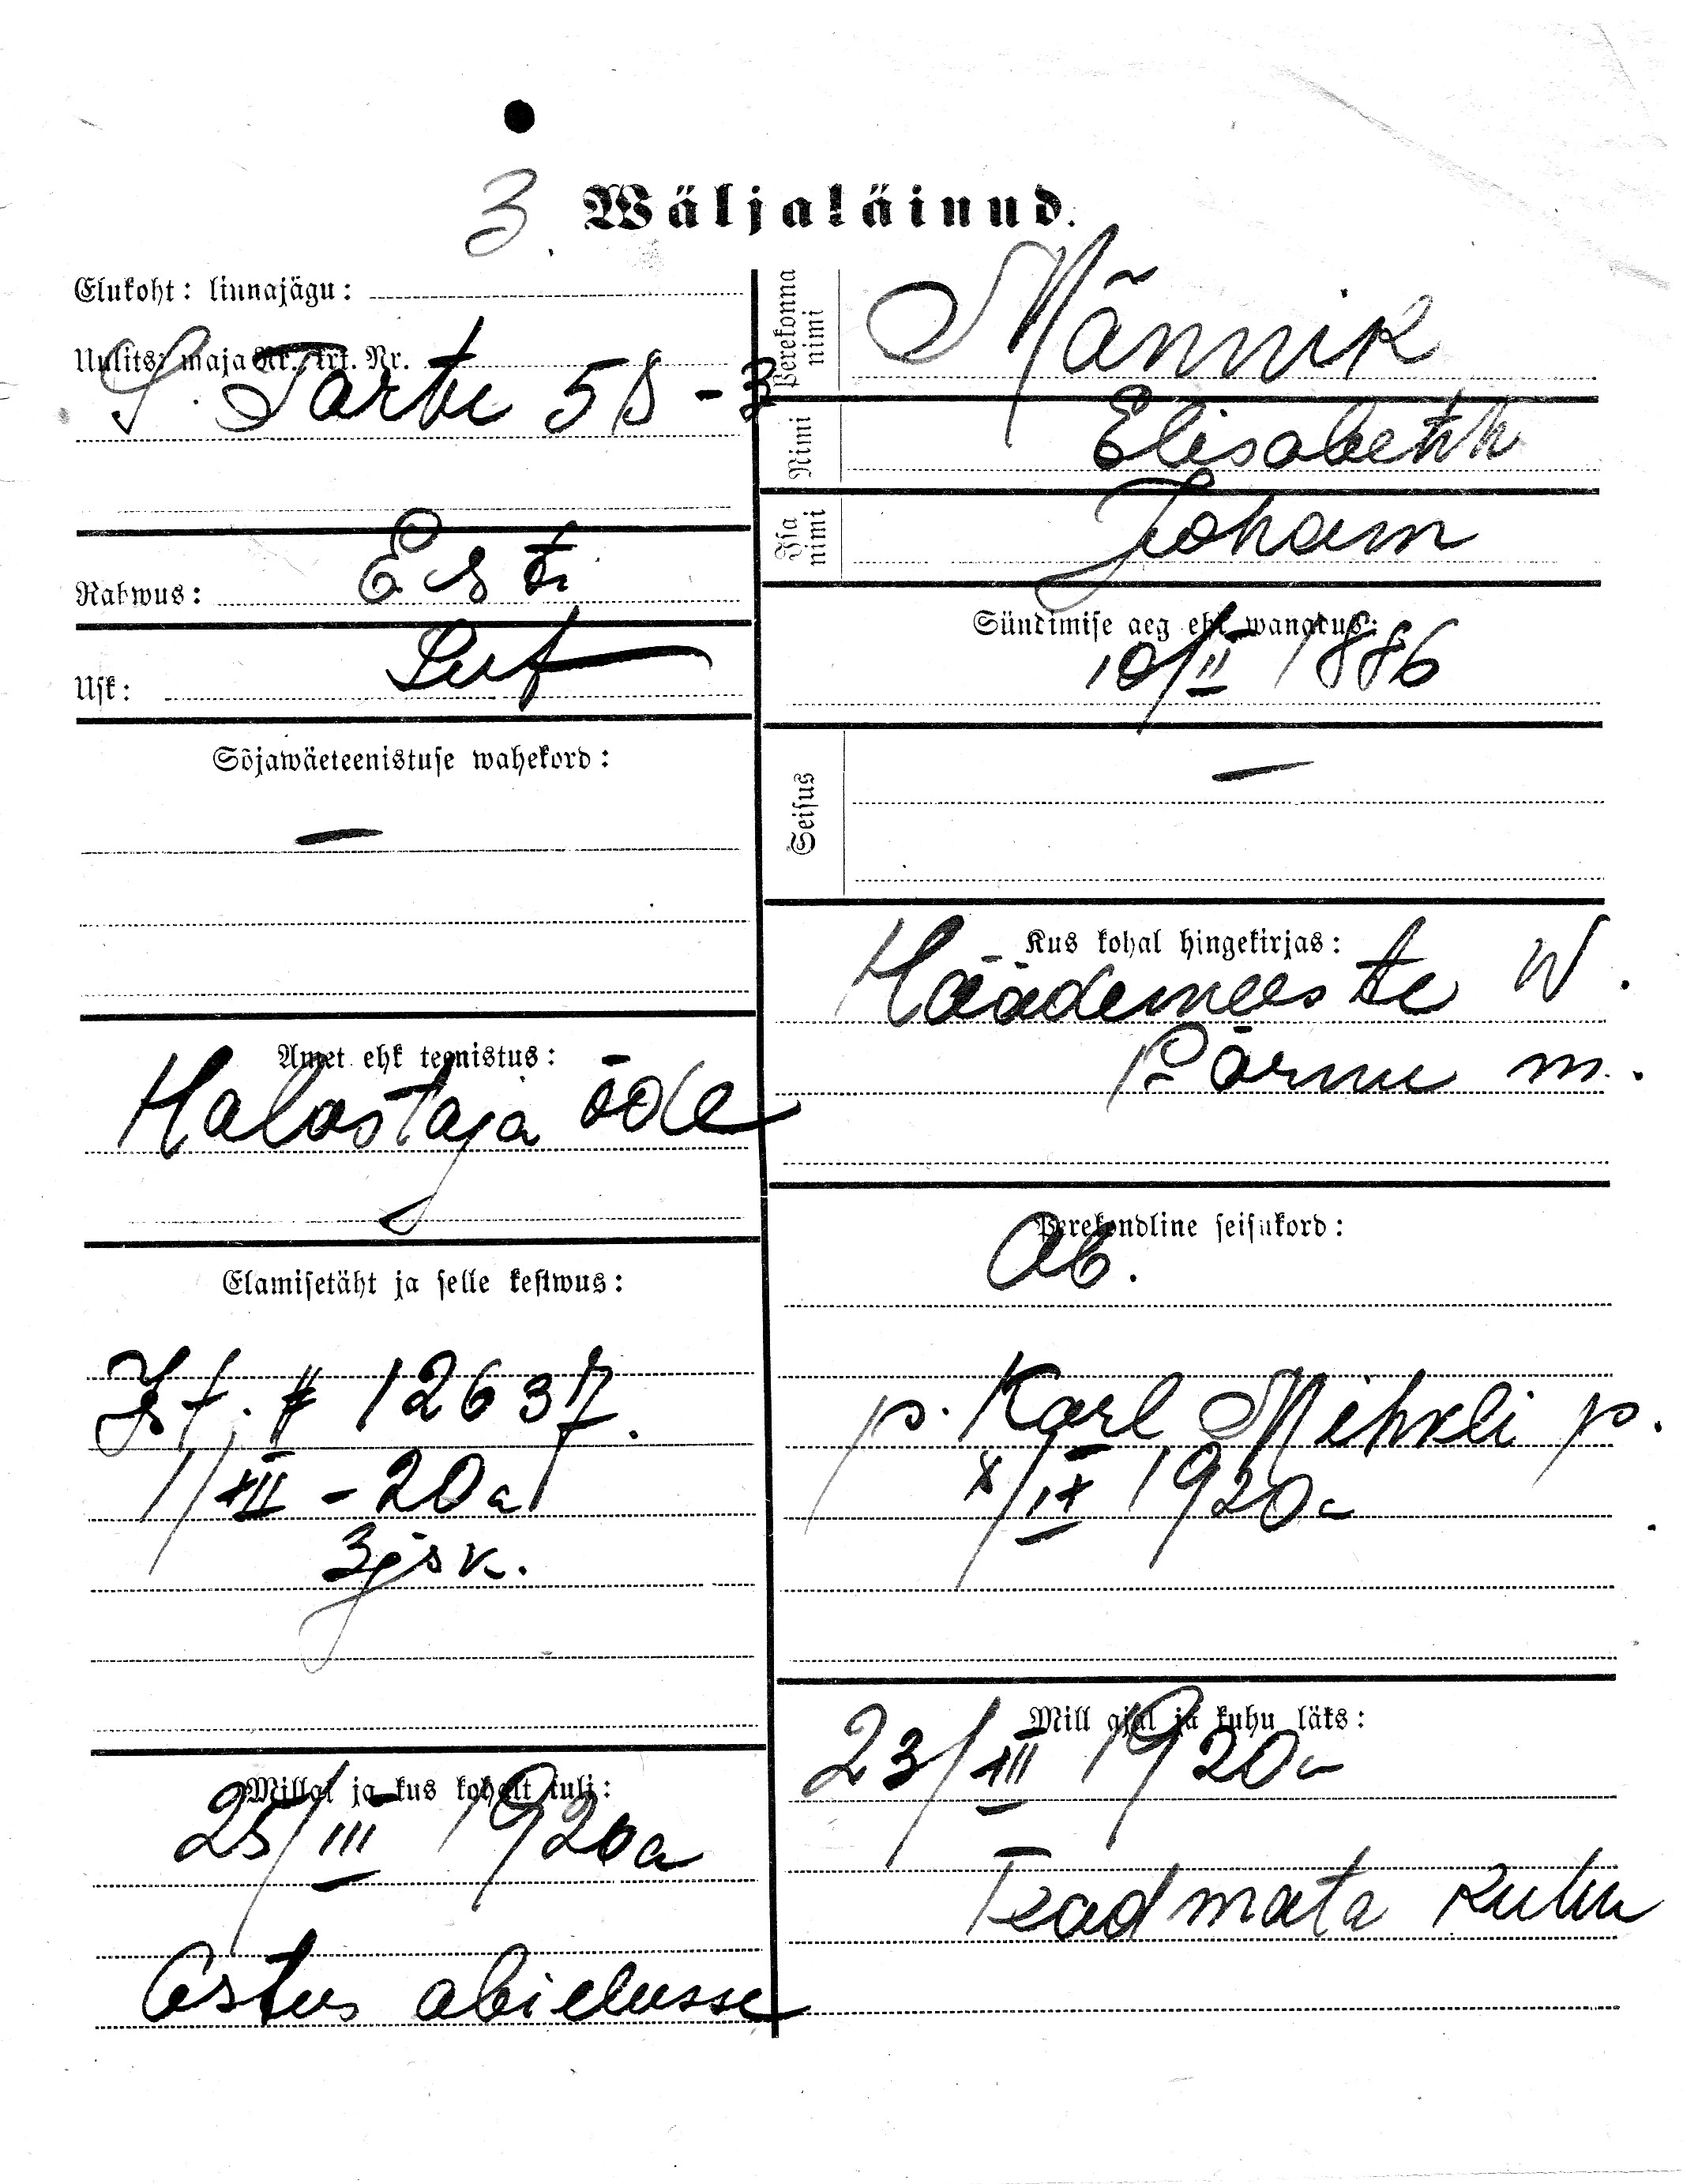 3. Wäljaläinud.
Elukoht: linnajägu:
Uulits: maja Nr. krt. Nr.
S. Tartu 58-3
Rahwus: Esti
Usk: Lut
Sõjawäeteenistuse wahekord:
—
Amet ehk teenistus:
Halastaja õde
Elamisetäht ja selle kestwus:
12637.
1/XII-20a
3 jsk.
Millal ja kus kohalt tuli:
25/III 1920a
Astus abielusse
Perekonna nimi Männik
Nimi Elisabeth
Isa nimi Johann
Sündimise aeg ehk wanadus:
10/II 1886
Seisus —
Kus kohal hingekirjas:
Häädemeeste W.
Pärnu m.
Perekondline seisukord:
Ab.
p. Karl Mihkli p.
X/IX 1920a
Mill ajal ja kuhu läks:
23/XII 1920a
Teadmata kuhu